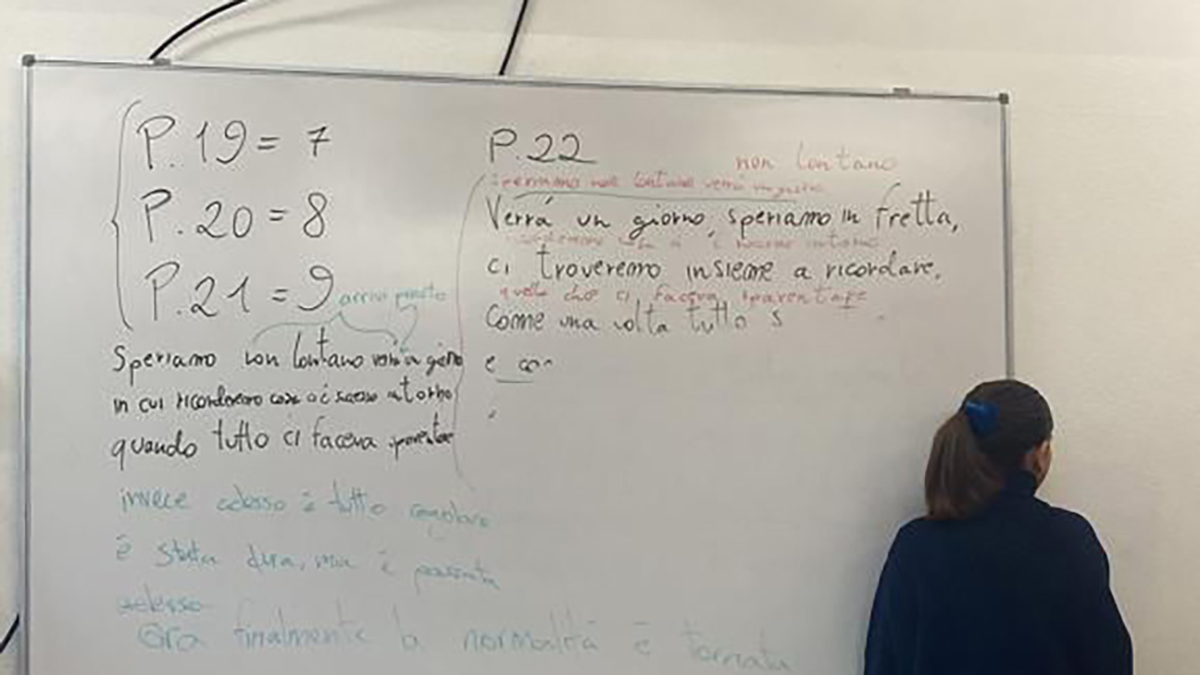 P.19 = 7
P.20 = 8
P.21 = 9
arrivi presto
Speriamo non lontano verrà un giorno
in cui ricorderemo cosa ci è successo intorno
quando tutto ci faceva spaventare
invece adesso è tutto regolare
è stata dura, ma è passata
adesso
Ora finalmente la normalità è tornata
P.22
non lontano
speriamo non lontano verrà
Verrá un giorno, speriamo in fretta,
ricorderemo
ci troveremo insieme a ricordare,
quello che ci faceva spaventare
Come una volta tutto s
e con